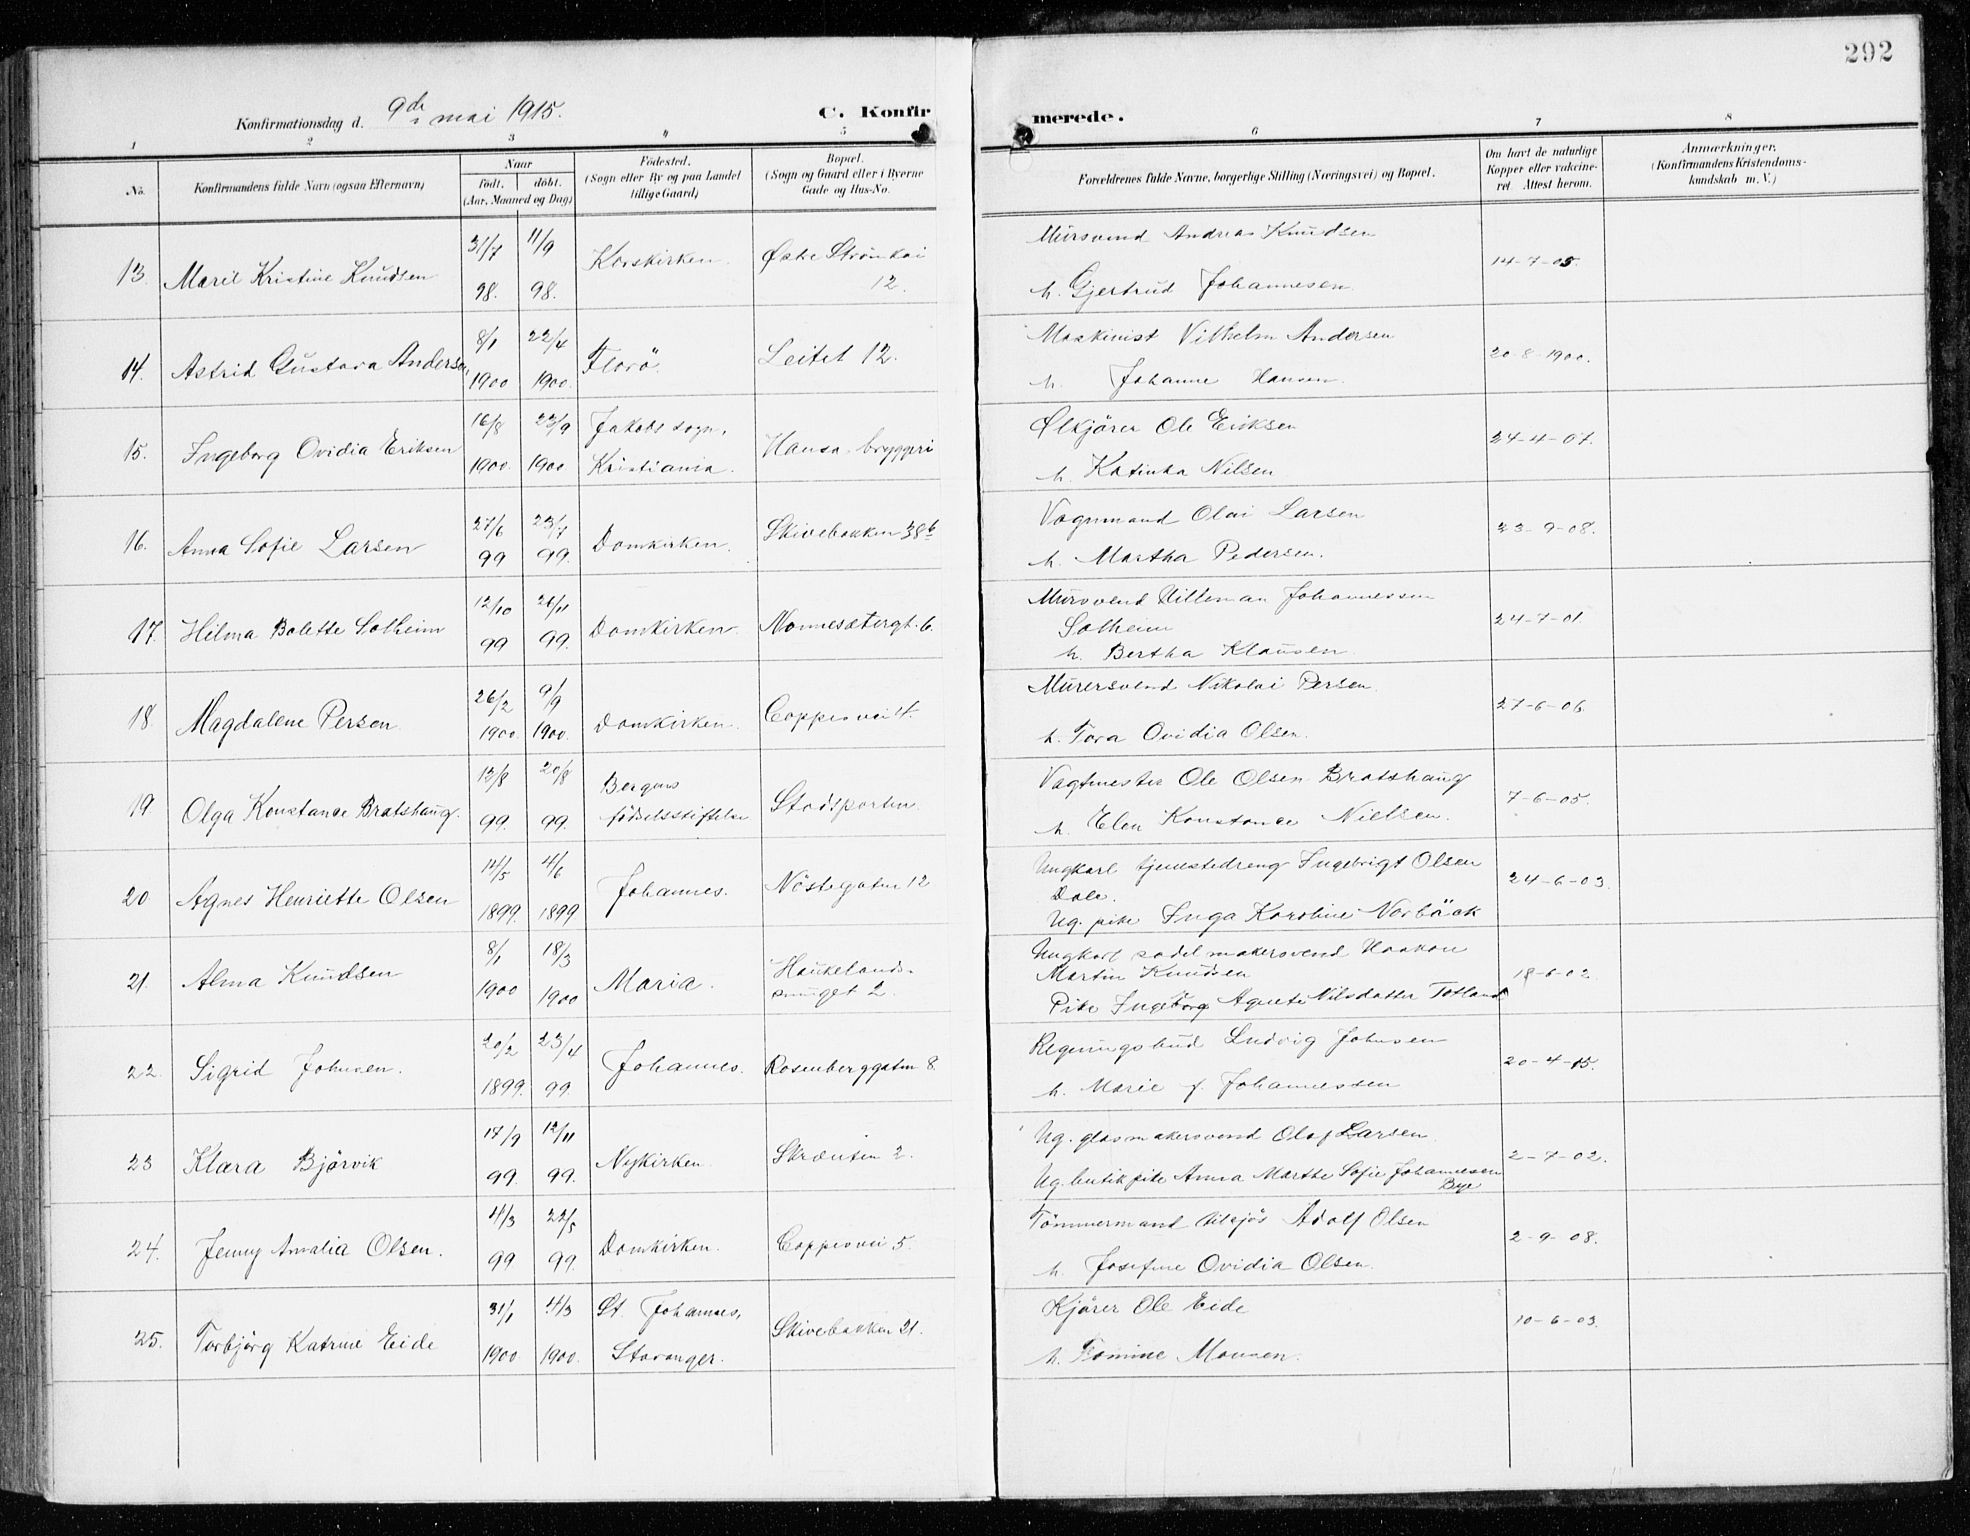 292
Konfirmationsdag d. 9de mai 1915.
C. Konfirmerede.
1 2 3 " 5 6 7 8
No.
Konfirmandens fulde Navn (ogsaa Efternavn)
Naar
født. døbt.
(Aar, Maaned og Dag)
Fødested.
(Sogn eller By og paa Landet
tillige Gaard)
Bopæl.
(Sogn og Gaard eller i Byerne
Gade og Hus-No.
Forældrenes fulde Navne, borgerlige Stilling (Næringsvei) og Bopæl.
Om havt de naturlige
Kopper eller vakcine-
ret. Attest herom.
Anmærkninger.
(Konfirmandens Kristendoms-
kundskab m. V.)
31/7 11/9 Mursvend Andreas Knudsen
13. Maril Kristine Knudsen Korskirken. Østre Strømkai 14-7-05.
98. 98. 12. h. Gjertrud Johannesen.
8/1 22/4 Maskinist Vilhelm Andersen
14. Astrid Gustava Andersen Florö. Leitet 12. 20-8-1900.
1900 1900. h. Johanne Hansen.
16/8 23/9 Jakobs sogn, Ølkjörer Ole Eriksen
15. Ingeborg Ovidia Eriksen Hansa bryggeri 24-4-07.
1900. 1900 Kristiania. h. Katinka Nilsen
27/6 23/7 Vognmand Olai Larsen
16. Anna Sofie Larsen Domkirken. Skivebakken 38b 23-9-08.
99 99. h. Martha Pedersen.
12/10 26/11 Mursvend Hilleman Johannessen
17. Hilma Bolette Solheim Domkirken. Nonnesætergt. 6. Solheim 24-7-01.
99 99. h. Bertha Klausen.
26/2 9/9 Murersvend Nikolai Persen.
18 Magdalene Persen. Domkirken. Coppesvei 4. 27-6-06.
1900. 1900. h. Tora Ovidia Olsen.
13/8 20/8 Bergens Vagtmester Ole Olsen Bratshaug
19 Olga Konstance Bratshaug. Stadsporten. 7-6-05.
99. 99. födselsstiftelse h. Elen Konstance Nielsen.
14/5 4/6 Ungkarl tjenestedreng Ingebrigt Olsen
20 Agnes Henriette Olsen Johannes. Nöstegaten 12 Dale. 24-6-03.
1899. 1899 Ug. pike Inga Karoline Norbäck
8/1 18/3 Haukelands- Ungkarl sadelmakersvend Haakon
21. Alma Knudsen Maria. smuget 2. Martin Knudsen 18-6-02.
1900 1900 Pike Ingeborg Agnete Nilsdatter Totland
20/2 23/4 Regningsbud Ludvig Johnsen
22. Sigrid Johnsen. Johannes. Rosenberggaten 8 20-4-15.
1899. 99. h. Marie f. Johannessen
17/9 12/11 Ug. glasmakersvend Olaf Larsen.
23 Klara Bjôrvik Nykirken. Skrænten 2. 2-7-02.
99. 99. Ug. butikpike Anna Marthe Sofie Johannesen Bye
4/3 22/5 Tömmermand tilsjös Adolf Olsen
24. Jenny Amalia Olsen. Domkirken. Coppesvei 5. 2-9-08.
99 99. h. Josefine Ovidia Olsen.
31/1 4/3 St. Johannes, Kjörer Ole Eide
25. Torbjörg Katrine Eide Skivebakken 21. 10-6-03.
1900. 1900. Stavanger. h. Tomine Monsen.